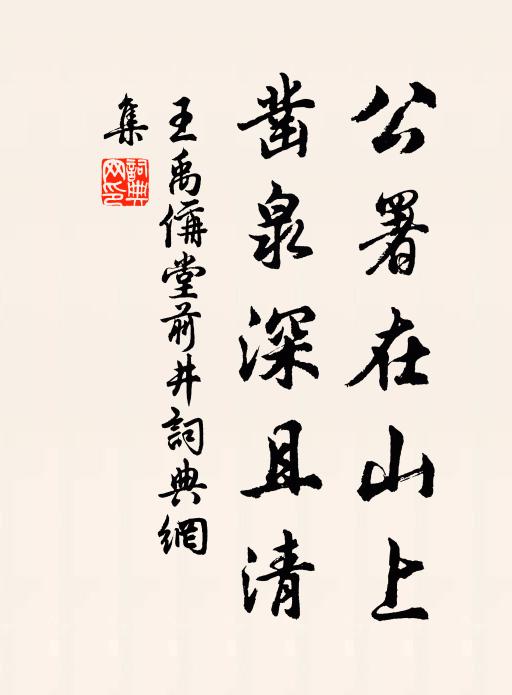 公署在山上
鑿泉深且清
王禹偁堂前井詞典網
集
詞典網印